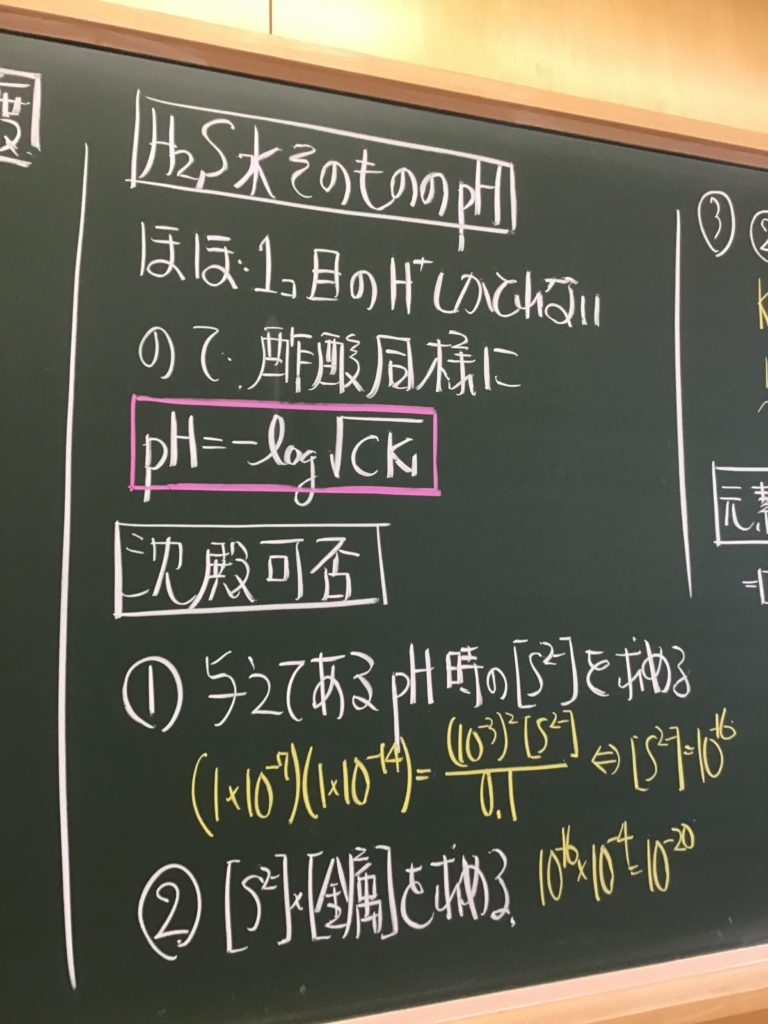 度
H₂S水そのもののpH
ほぼ1コ目のH⁺しかとれない
ので酢酸同様に
pH=-log√CK₁
沈殿可否
① 与えてあるpH時の[S²⁻]を求める
(1×10⁻⁷)(1×10⁻¹⁴)=(10⁻³)²[S²⁻]/0.1 ⇔ [S²⁻]=10⁻¹⁶
② [S²⁻]×[金属]を求める 10⁻¹⁶×10⁻⁴=10⁻²⁰
③
K
元素
=[